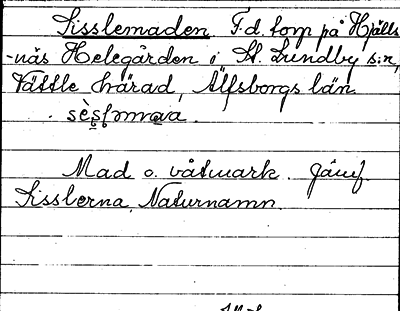 Sisslemaden F.d. torp på Hjälls
-nås Helegården i St. Lundby s:n,
Vättle härad, Älfsborgs län.
Mad o. våtmark. Jämf.
Sisslerna, Naturnamn.